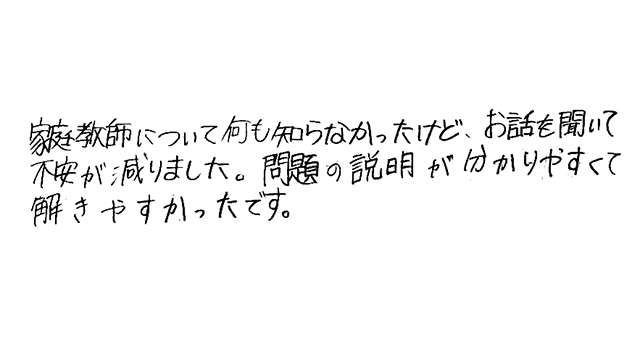 家庭教師について何も知らなかったけど、お話を聞いて
不安が減りました。問題の説明が分かりやすくて
解きやすかったです。